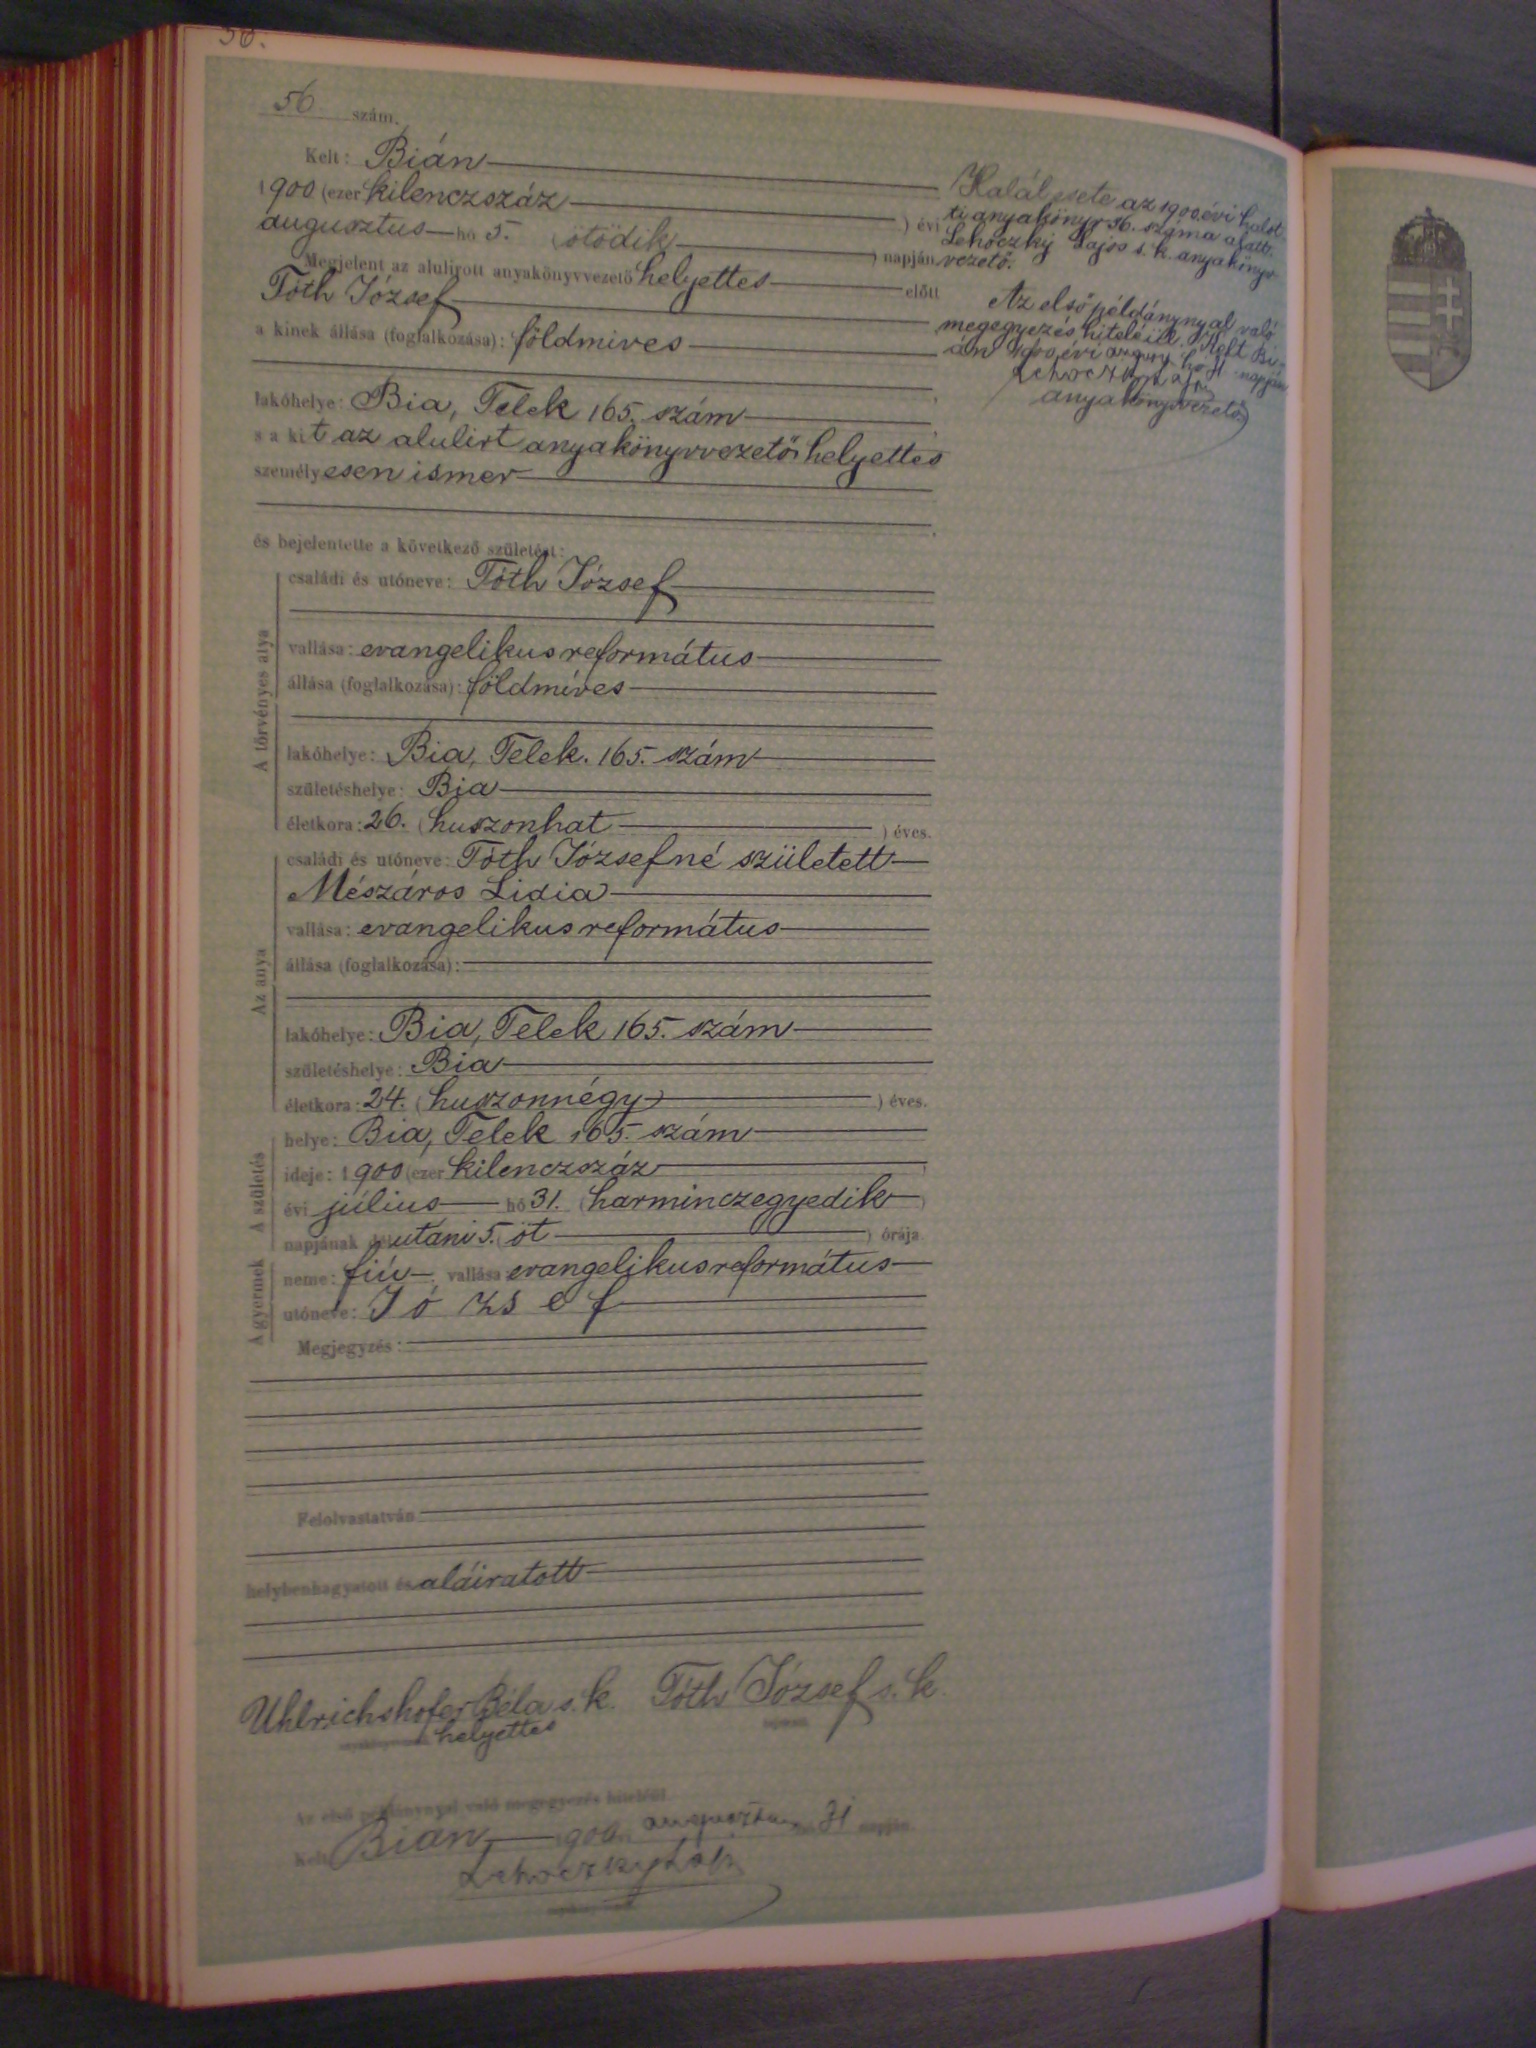 56.
56 szám.
Kelt: Bián
1900 (ezer kilenczszáz ) évi
augusztus hó 5. (ötödik ) napján
Megjelent az alulirott anyakönyvvezető helyettes előtt
Tóth József
a kinek állása (foglalkozása): földmives
lakóhelye: Bia, Telek 165. szám
s a kit az alulirt anyakönyvvezető helyettes
személyesen ismer
és bejelentette a következő születést:
A törvényes atya
családi és utóneve: Tóth József
vallása: evangelikus református
állása (foglalkozása): földmíves
lakóhelye: Bia, Telek. 165. szám
születéshelye: Bia
életkora: 26. (huszonhat ) éves.
Az anya
családi és utóneve: Tóth Józsefné született
Mészáros Lidia
vallása: evangelikus református
állása (foglalkozása):
lakóhelye: Bia, Telek 165. szám
születéshelye: Bia
életkora: 24. (huszonnégy ) éves.
A születés
helye: Bia, Telek 165. szám
ideje: 1900 (ezer kilenczszáz )
évi július hó 31. (harminczegyedik )
napjának utáni 5. (öt ) órája
A gyermek
neme: fiú vallása: evangelikus református
utóneve: József
Megjegyzés:
Felolvastatván
helybenhagyatott és aláiratott
Uhlrichshofer Béla s. k. Tóth József s. k.
helyettes
Az első példánynyal való megegyezés hiteléül
Kelt Bián, 1900 augusztus hó 31 napján
Lehoczky Lajos
Halál esete az 1900. évi halot
ti anyakönyv 36. száma alatt.
Lehoczky Lajos s. k. anyakönyv
vezető.
Az első példánynyal való
megegyezés hiteléül. Kelt Bi
án 1900 évi hó napján
Lehoczky
anyakönyvvezető